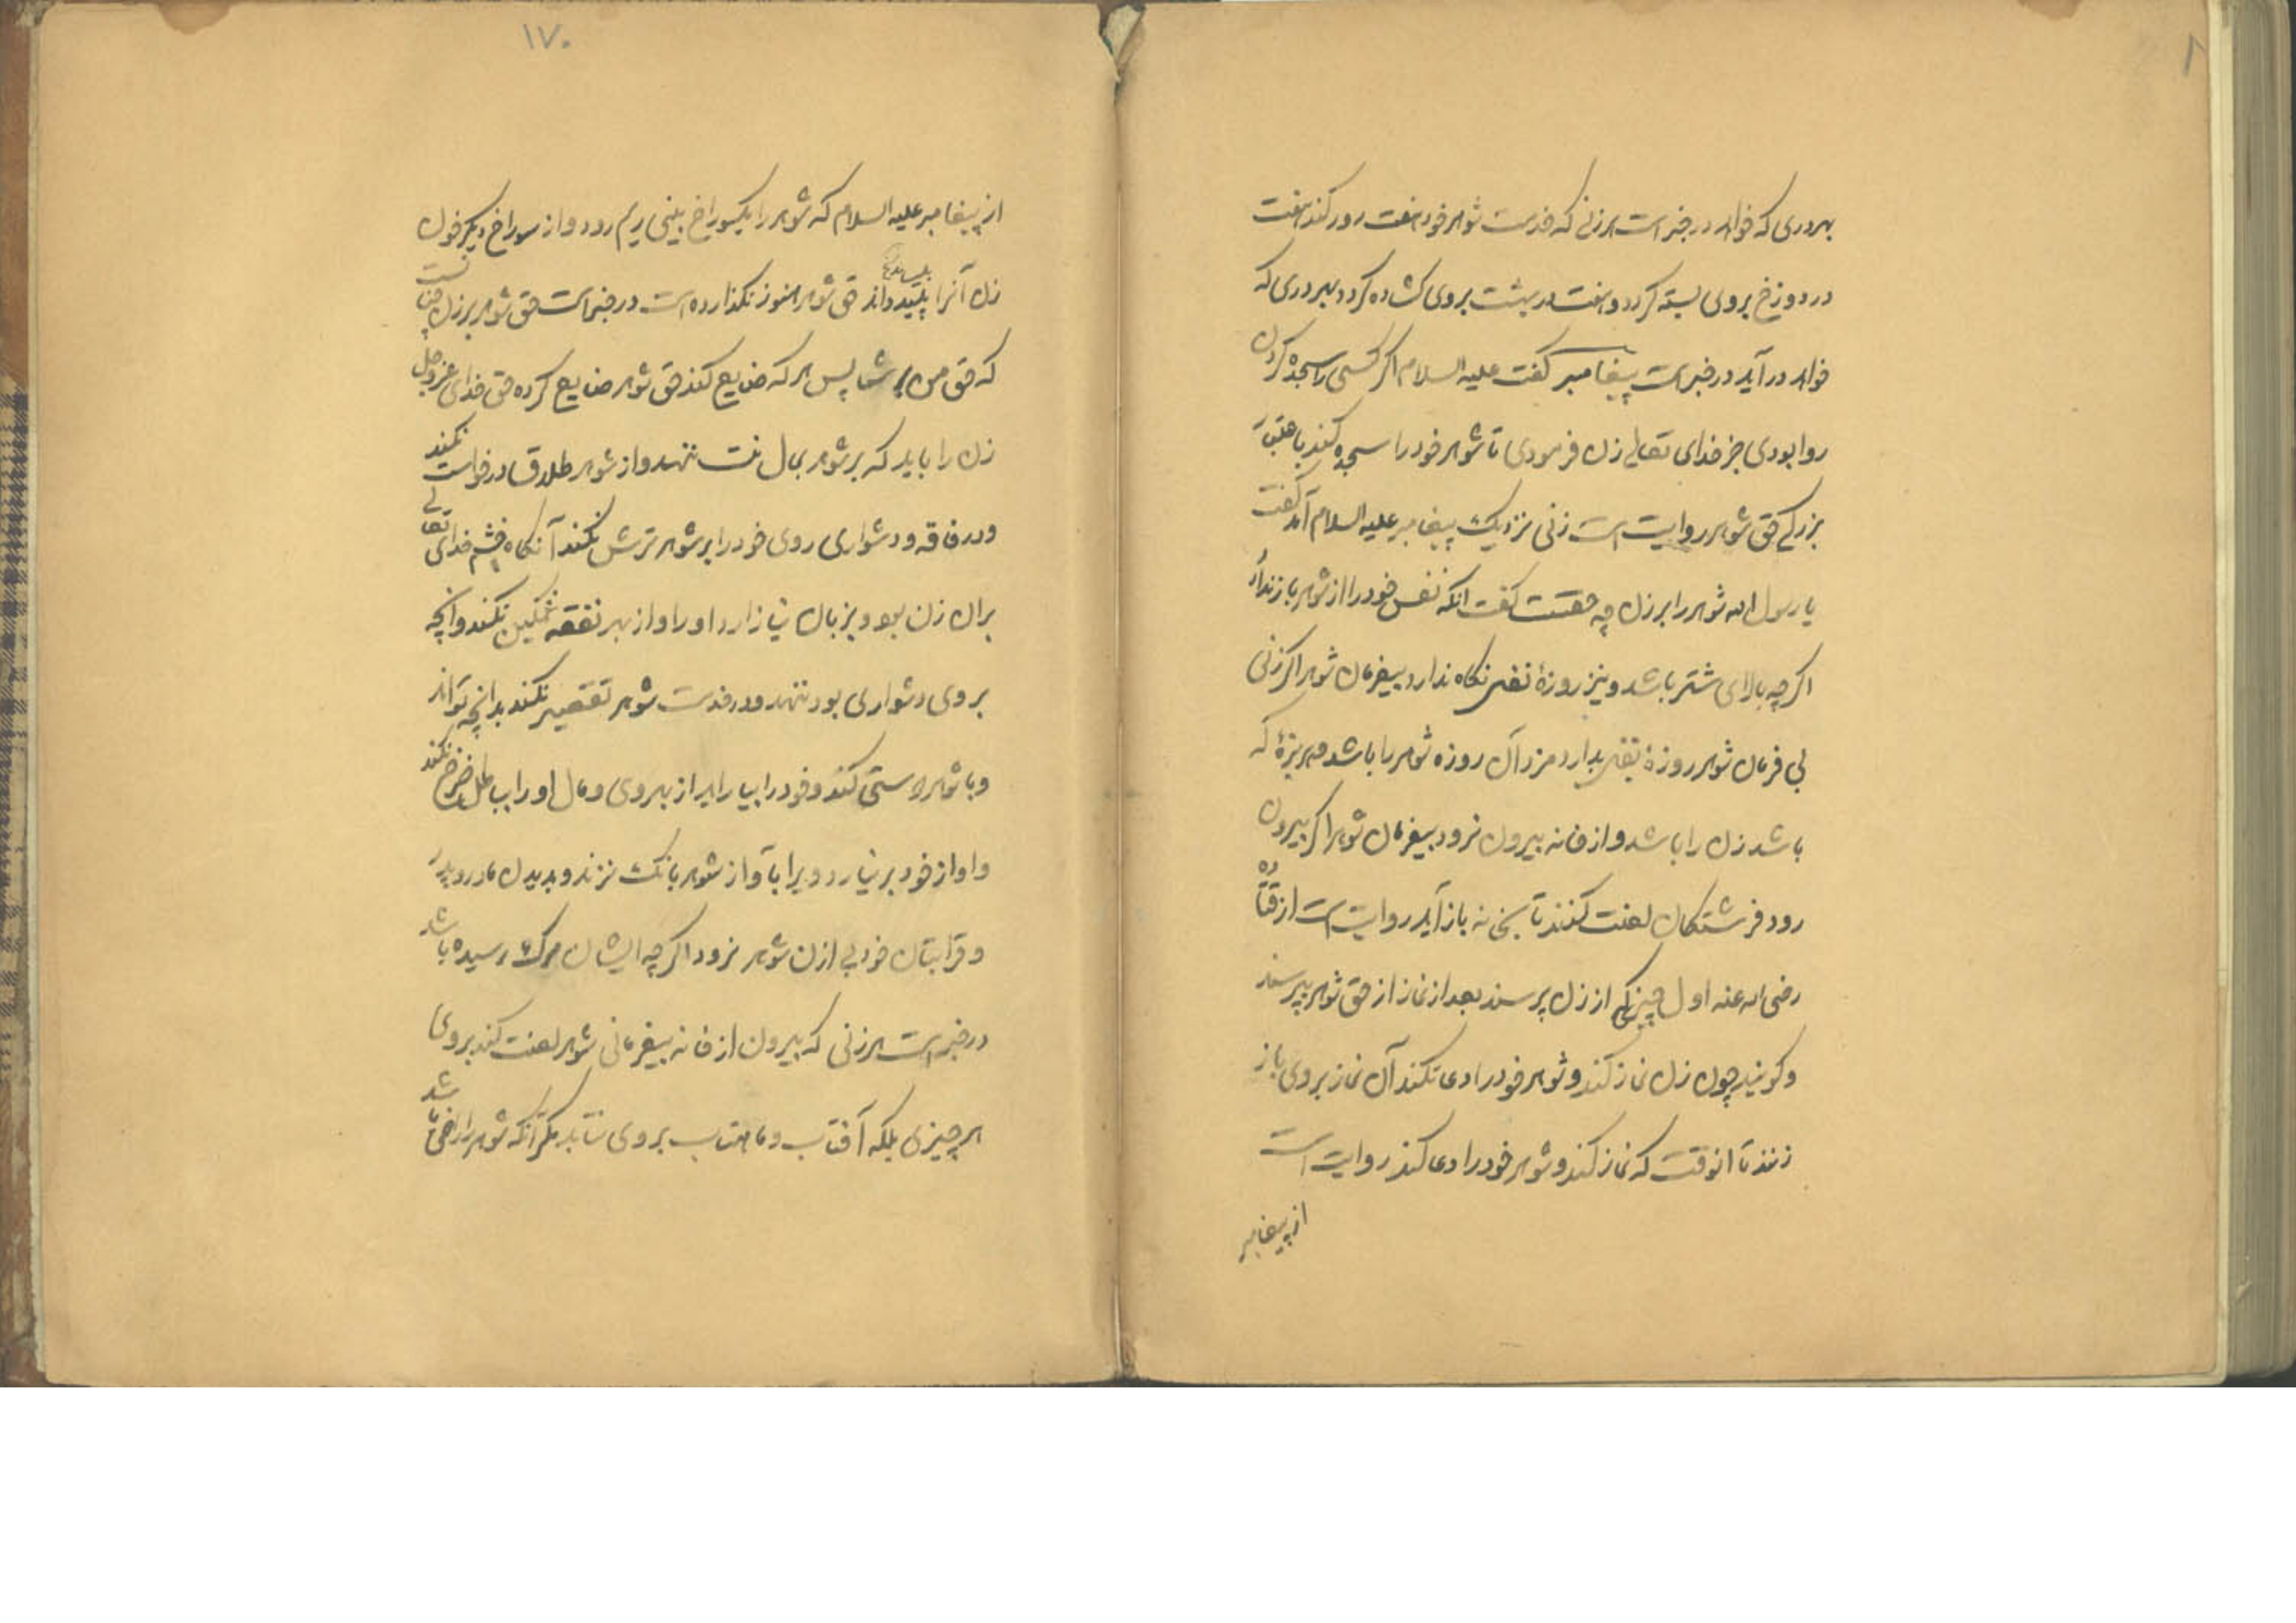 بهر دری که خواهد در خبر است هر زنی که خدمت شوهر خود هفت روز کند هفت
در دوزخ بروی بسته کردد و هشت در بهشت بروی کشاده کردد بهر دری که
خواهد در آید در خبر است پیغامبر کفت علیه السلام اکر کسی را سجده کردن
روا بودی جز خدای تعالی زن فرمودی تا شوهر خود را سجده کند باعتبار
بزرکی حق شوهر روایت است زنی نزدیک پیغامبر علیه السلام آمد کفت
یا رسول الله شوهر را بر زن چه حقست کفت انکه نفس خود را از شوهر باز ندارد
اکر چه بالای شتر باشد و نیز روزهٔ نفس نکاه ندارد بیفرمان شوهر اکر زنی
بی فرمان شوهر روزهٔ نفس بدارد مزد آن روزه شوهر را باشد و هر بزهٔ که
باشد زن را باشد و از خانه بیرون نرود بیفرمان شوهر اکر بیرون
رود فرشتکان لعنت کنند تا بخانه باز آید روایت است از قتاده
رضی الله عنه اول چیزی که از زن پرسند بعد از نماز از حق شوهر پرسند
و کویند چون زن نماز کند و شوهر خود را دعا نکند آن نماز بروی باز
زنند تا انوقت که نماز کند و شوهر خود را دعا کند روایت است
از پیغامبر
۱۷۰
از پیغامبر علیه السلام که شوهر را یکسوراخ بینی ریم رود و از سوراخ دیکر خون
زن آنرا بلیسد حق شوهر هنوز نکذارده است در خبر است حق شوهر بر زن چنانست
که حق من بر شما پس هر که ضایع کند حق شوهر ضایع کرده حق خدای عز وجل
زن را باید که بر شوهر بمال منت ننهد و از شوهر طلاق درخواست نکند
و در فاقه و دشواری روی خود را بر شوهر ترش نکند آنکاه خشم خدای تعالی
بران زن بود و بزبان نیازارد او را و از بهر نفقه غمکین نکند و انچه
بروی دشواری بود ننهد و در خدمت شوهر تقصیر نکند بدانچه تواند
و با شوهر راستی کند و خود را بیاراید از بهر وی و مال او را بباطل خرج نکند
و اواز خود بر نیارد و یرا بآواز شوهر بانک نزند و بدیدن مادر و پدر
و قرابتان خود بی اذن شوهر نرود اکر چه ایشان بمرک رسیده باشد
در خبر است هر زنی که بیرون از خانه بیفرمانی شوهر لعنت کند بروی
هر چیزی بلکه آفتاب و ماهتاب بروی نتابد مکر آنکه شوهر راضی باشد